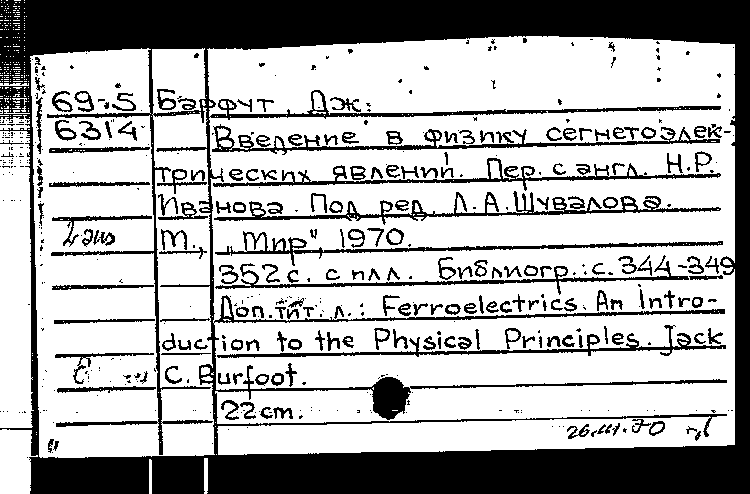 69-5 Барфут, Дж.
6314 Введение в физику сегнетоэлек-
трических явлений. Пер. с англ. Н.Р.
Иванова. Под ред. Л.А.Шувалова.
2 экз М., „Мир", 1970.
352 с. с илл. Библиогр.: с. 344-349
Доп. тит. л.: Ferroelectrics. An Intro-
duction to the Physical Principles. Jack
C. Burfoot.
22 cm.
26.III.70